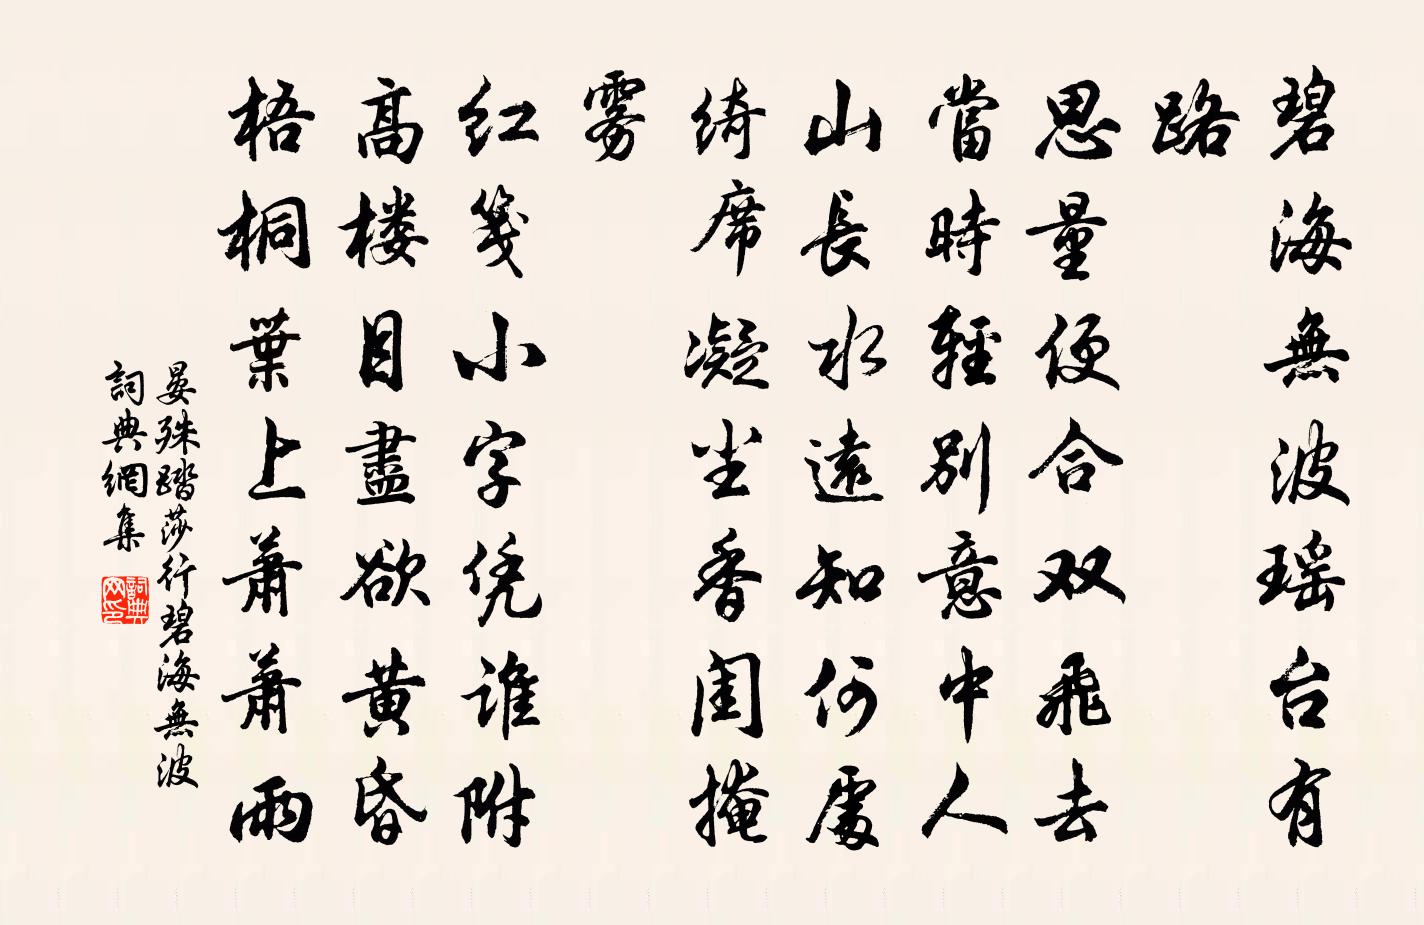 碧海無波瑶台有
路
思量便合双飛去
當時輕別意中人
山長水遠知何處
綺席凝尘香闺掩
雾
红笺小字凭谁附
高楼目盡欲黄昏
梧桐葉上萧萧雨
晏殊踏莎行碧海無波
詞典網集
詞典
网印